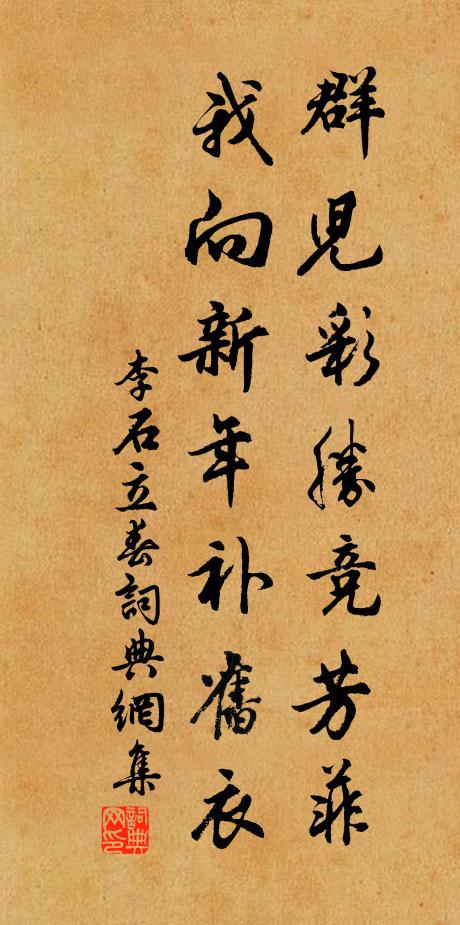 群児彩勝竞芳菲
我向新年补舊衣
李石立春詞典網集
詞典网印